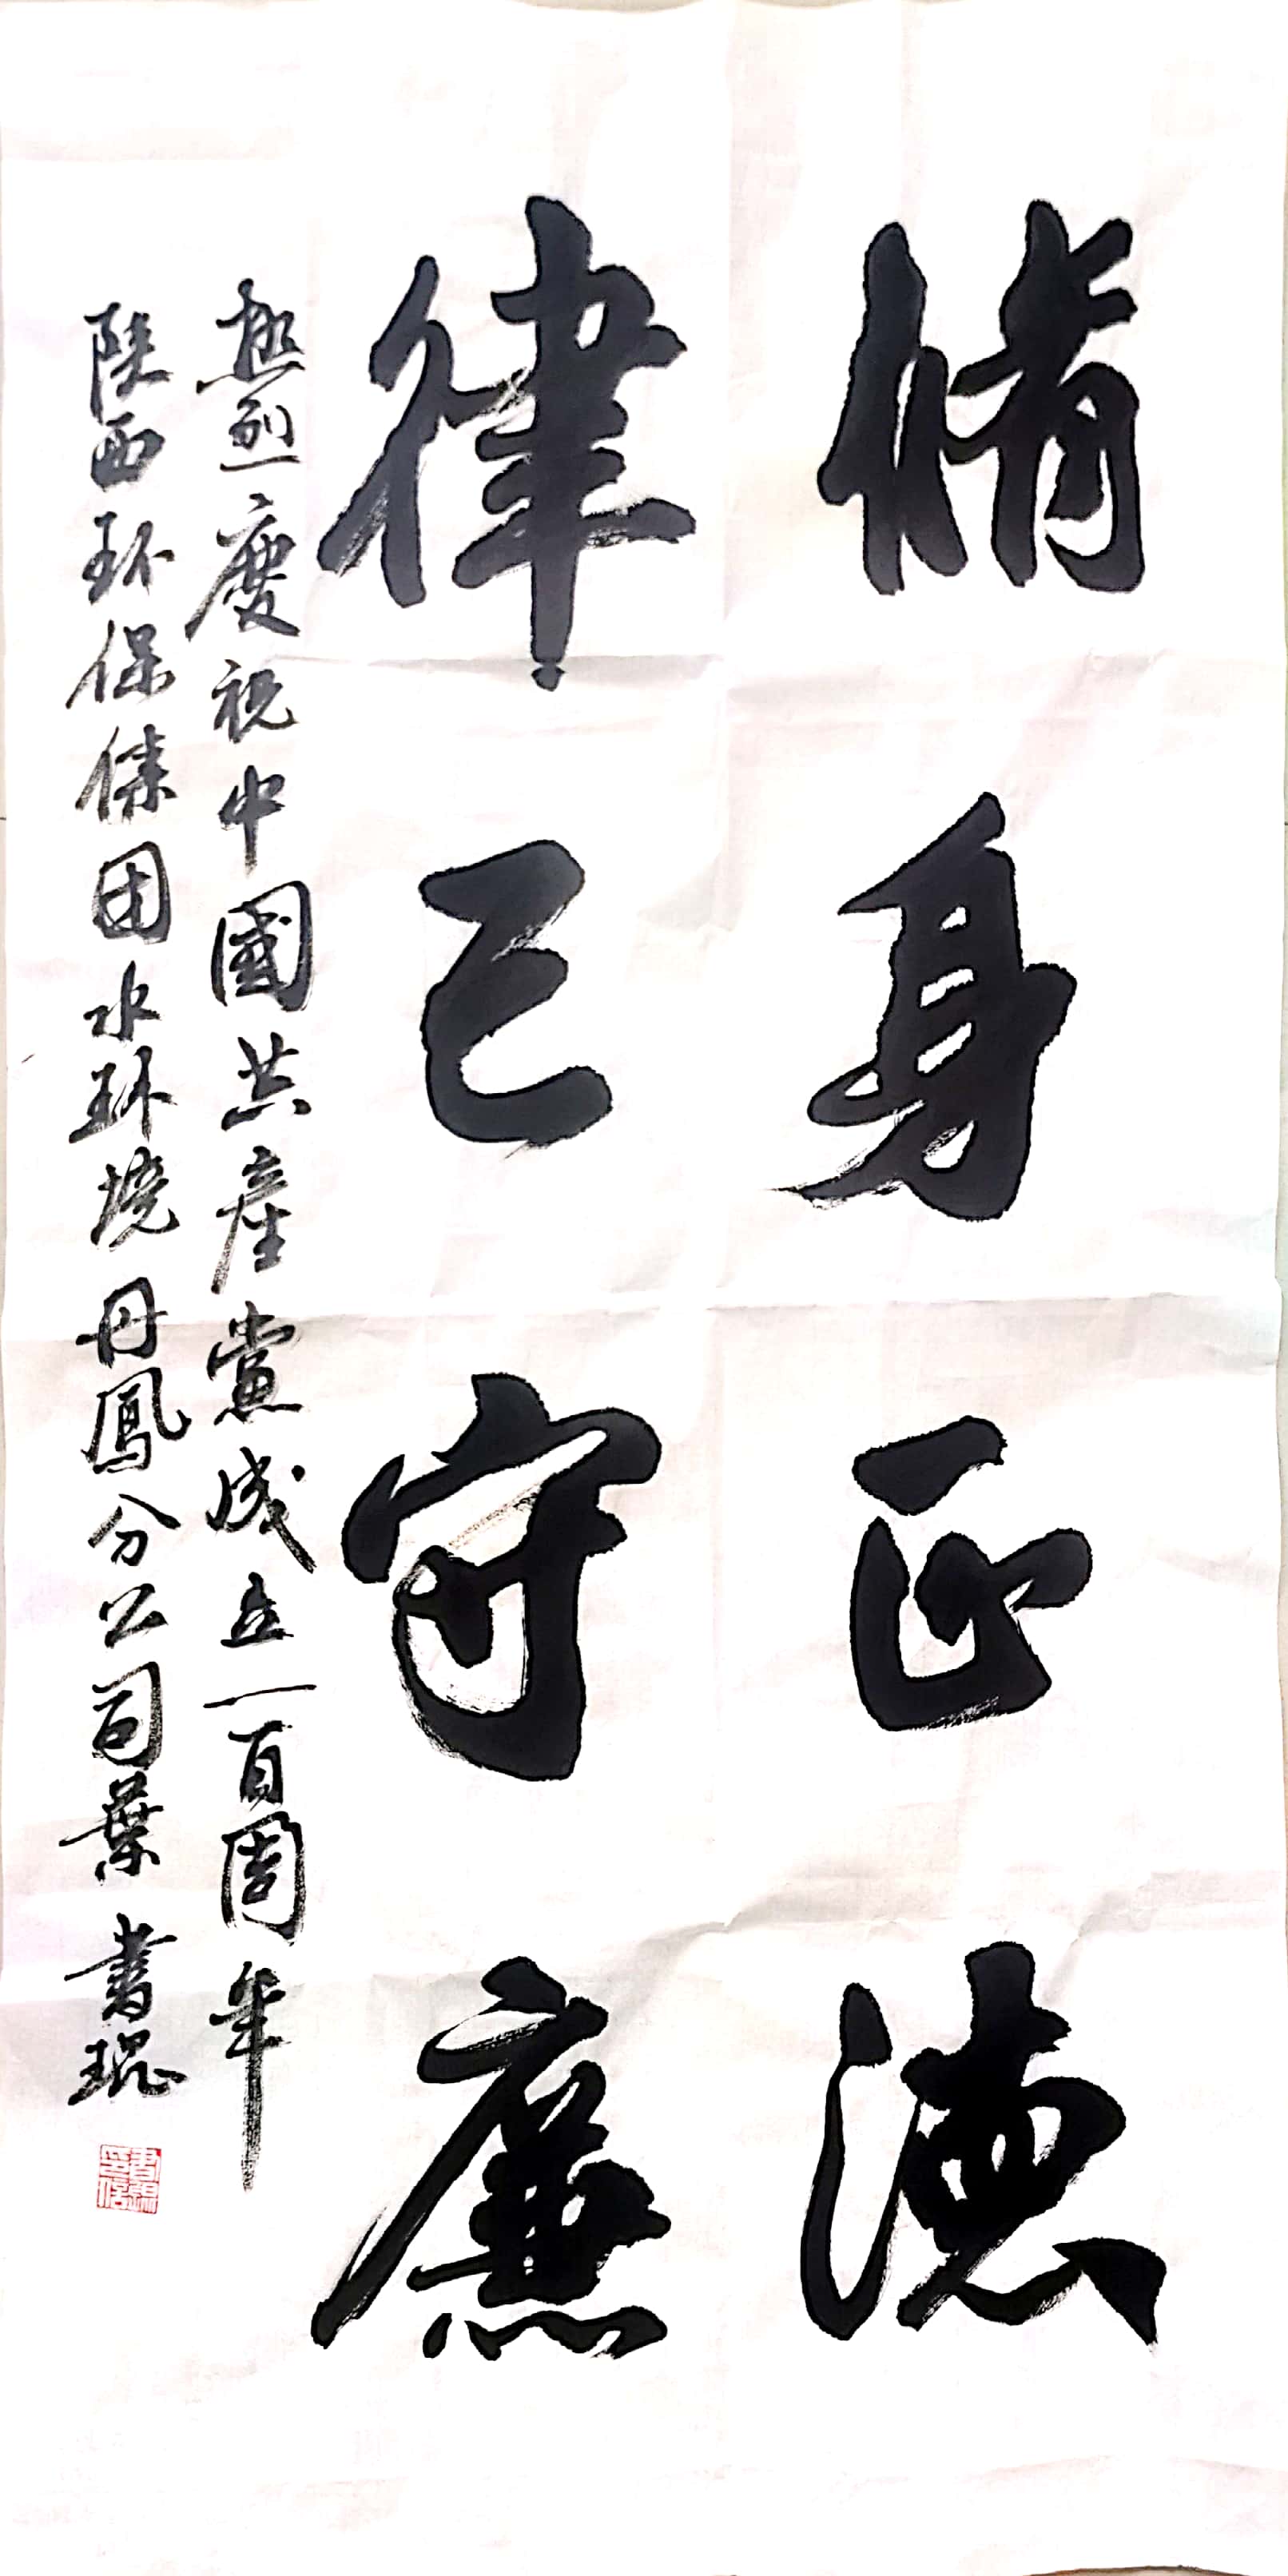 脩身正德
律己守廉
热烈慶祝中國共產黨成立一百周年
陕西环保集团水环境丹鳳分公司葉書琨
書琨印信